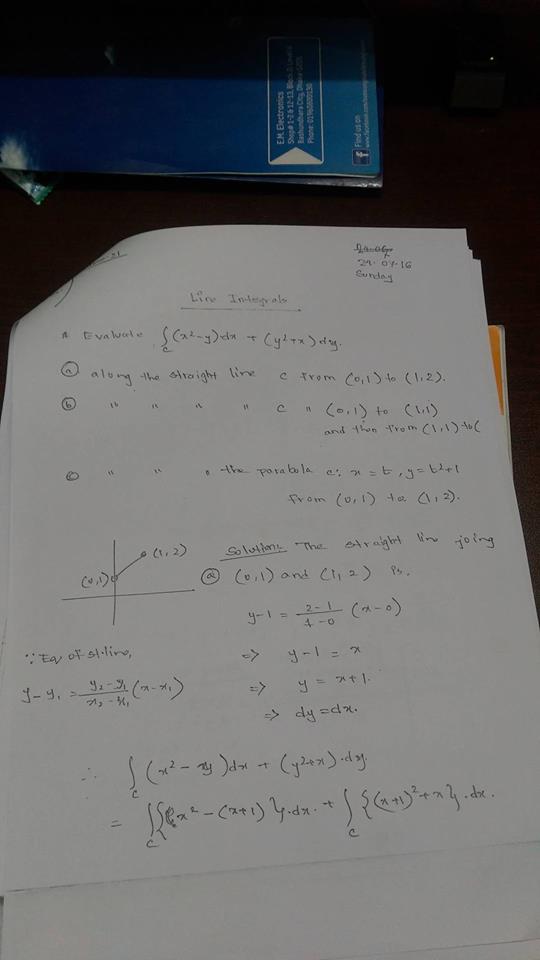 E.M. Electronics
Shop# 1-2 & 12-13, Block-B, Level-5
Bashundhara City, Dhaka-1205.
Find us on
29.07.16
Sunday
Line Integrals
Evaluate ∫c (x²-y)dx + (y²+x)dy.
(a) along the straight line c from (0,1) to (1,2).
(b) " " " " c " (0,1) to (1,1)
and then from (1,1) to (
(c) " " " the parabola c: x = t, y = t²+1
from (0,1) to (1,2).
(1,2)
(0,1)
Solution: The straight line joing
(a) (0,1) and (1,2) is.
y-1 = 2-1/1-0 (x-0)
∵ Eq of st.line,
y-y₁ = y₂-y₁/x₂-x₁ (x-x₁)
=> y-1 = x
=> y = x+1.
=> dy = dx.
∴ ∫c (x²-y)dx + (y²+x).dy.
= ∫c {x²-(x+1)}.dx. + ∫c {(x+1)²+x}.dx.